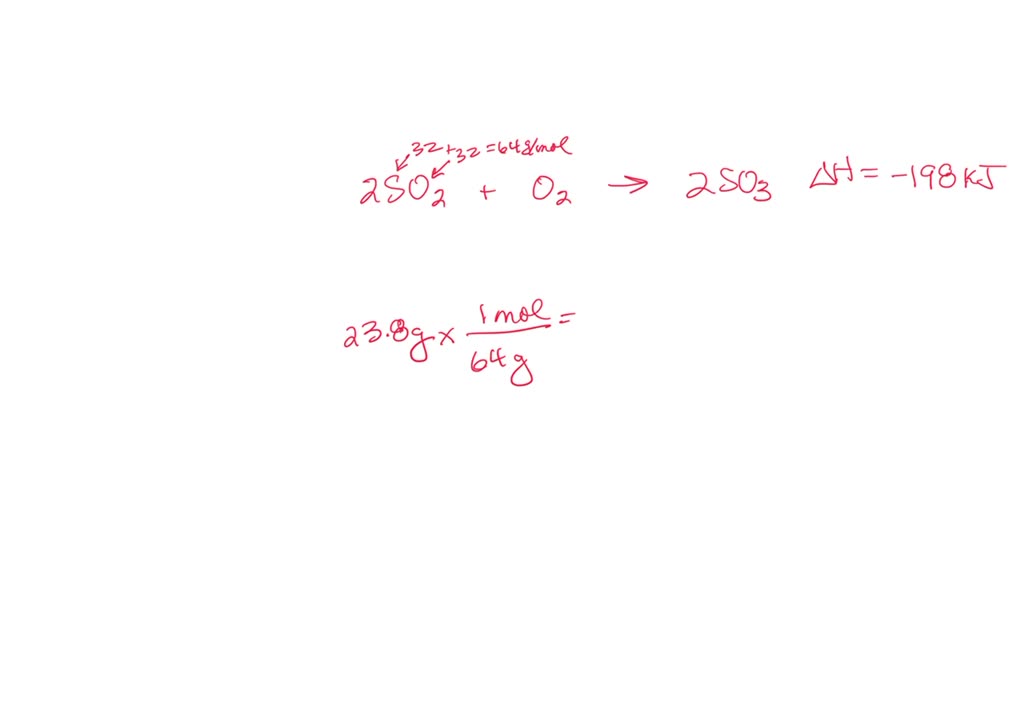 32 + 32 = 64 g/mol
2SO₂ + O₂ → 2SO₃ ΔH = -198 kJ
23.8g × 1 mol =
64 g